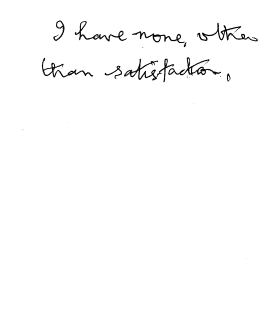 I have none, other
than satisfaction.